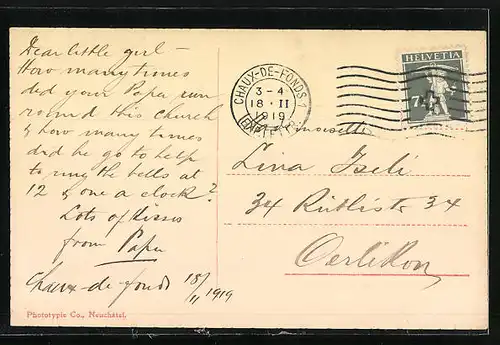 Dear little girl –
How many times
did your Papa run
round this church
& how many times
did he go to help
to ring the bells at
12 & one a clock?
Lots of kisses
from Papa
Chaux-de-fonds 18/II 1919
Phototypie Co., Neuchâtel.
CHAUX-DE-FONDS 1
3-4
18·II
1919
HELVETIA
7½
Mademoiselle
Lina Iseli
34 Rütlistr 34
Oerlikon